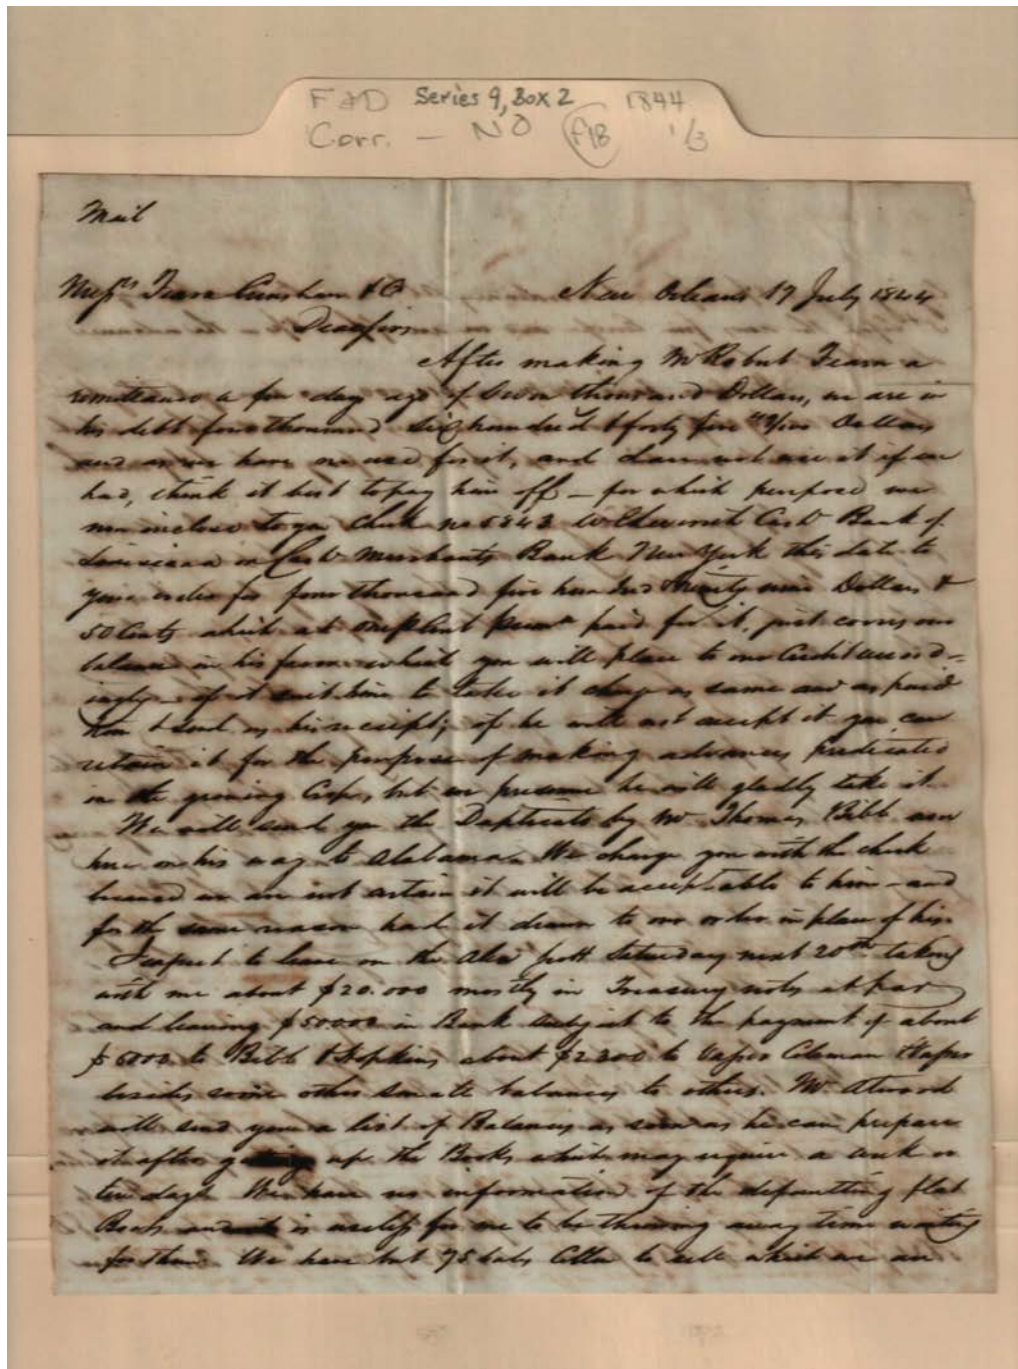 F & D Series 9, Box 2 1844
Corr. – NO FAB 1/3
Mail
Messrs Fearn Crenshaw & Co New Orleans 17 July 1844
Dear sirs
After making Mr Robert Fearn a
remittance a few days ago of Seven thousand Dollars, we are in
his debt four thousand Six hundred & forty five 49/100 Dollars
and as we have no use for it, and dare not use it if we
had, think it best to pay him off – for which purpose we
now inclose to you Check no 5843 Cash Bank of
Louisiana on Cash Merchants Bank New York this date to
your order for four thousand five hundred Ninety nine Dollars &
50 Cents which at one p Cent prem paid for it, just covers our
balance in his favor which you will place to our Credit accord-
ingly – if it suit him to take it charge as same and as paid
him & send us his receipt; if he will not accept it you can
retain it for the purpose of making advances predicated
on the growing Crop, but we presume he will gladly take it.
We will send you the Duplicate by Mr Thomas Bibb now
here on his way to Alabama. We charge you with the check
because we are not certain it will be acceptable to him – and
for the same reason had it drawn to our order in place of his.
I expect to leave on the Alex Scott Saturday next 20th taking
with me about $20.000 mostly in Treasury notes at par
and leaving $50000 in Bank subject to the payment of about
$6000 to Bibb & Hopkins, about $2300 to Vasser Coleman & Vasser
besides some other small balances to others. Mr. Atwood
will send you a list of Balances as soon as he can prepare
it after up the Books which may require a week or
ten days. We have no information of the departing flat
Boats and it is useless for me to be throwing away time waiting
for them. We have but 75 bales Cotton to sell which we are